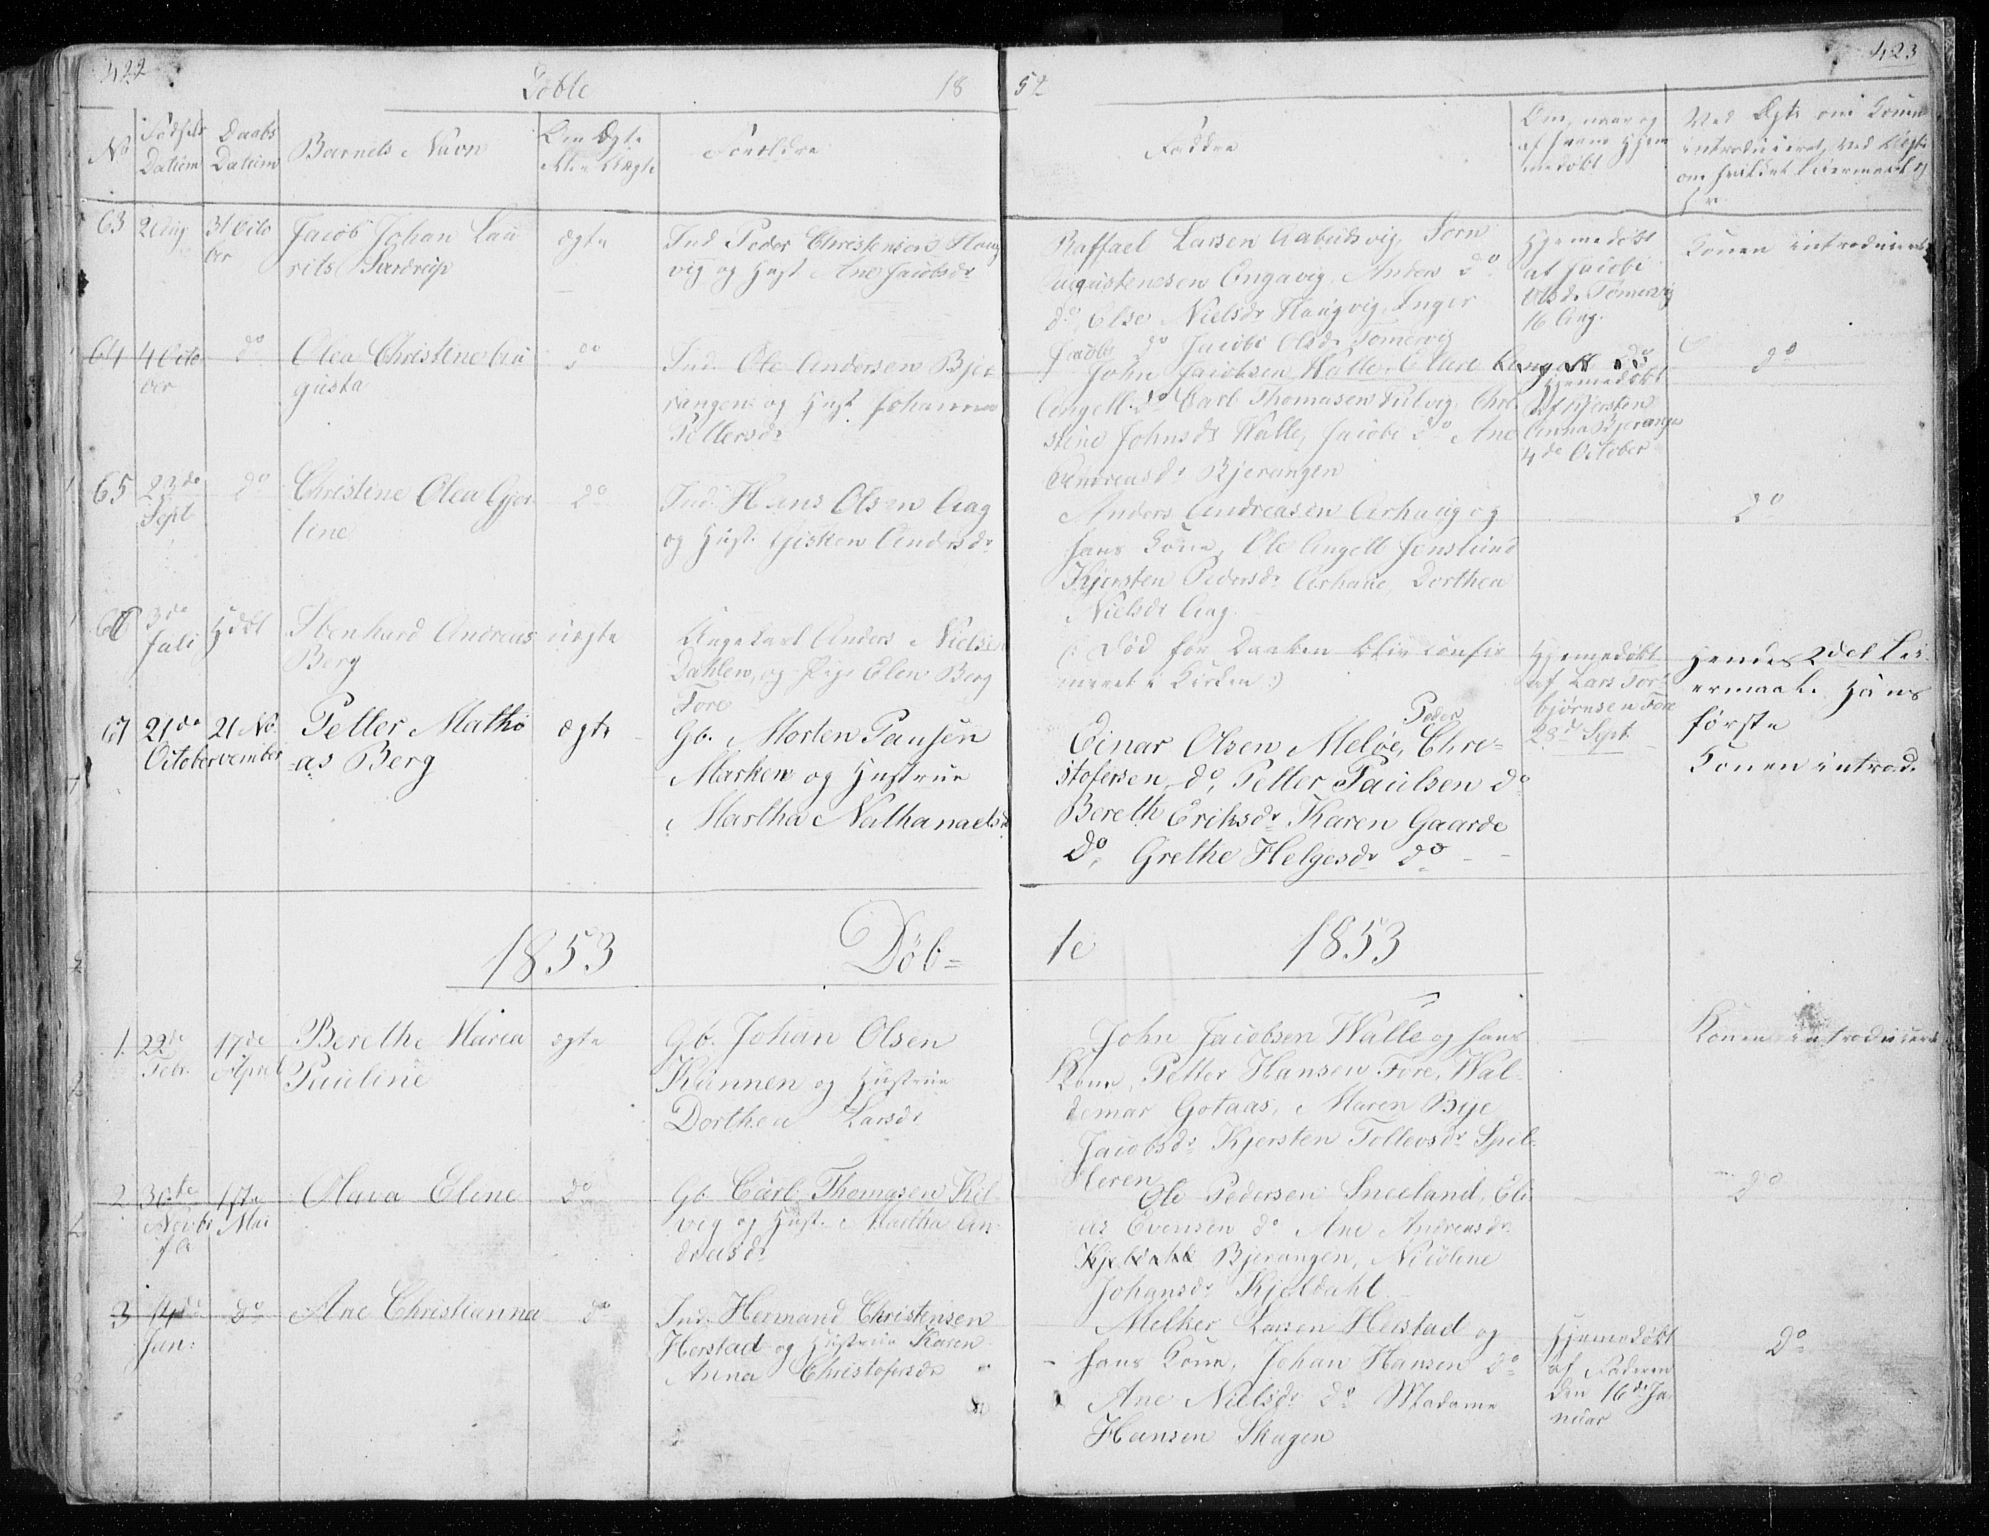 422
Døbte 18
52
423
No
Fødsels Datum
Daabs Datum
Barnets Navn
Om Ægte eller Uægte
Forældre
Faddre
Om, naar og af hvem hjemmedøbt
Ved Ægte om Konen introduceret, ved Uægte om hvilket Leiermaal
63
2 Aug
31 Octo
ber
Jacob Johan Lau
rits Sardrup
ægte
Ind. Peder Christensen Haug
vig og Hust Ane Jacobsdr
Raffael Larsen Aabudsvig, Jorn
Augustenesen Engavig, Anders do
do, Else Nielsdr Haugvig, Inger
Jacobs do Jacobi Olsdr Tomervig
Hjemedøbt
af Jacobi
Olsd. Tomervig
16 Aug.
Konen introduceret
64
4 Octo
ber
do
Olea Christine Au
gusta
do
Ind. Ole Andersen Bjer
rangen og Hust. Johanna
Pettersdr
John Jacobsen Walle, Ellert Angell do
Angell do Carl Thomasen Kilvig, Chri
stine Johnsdr Walle, Jacobi do Ane
Andreasdr Bjerangen
Hjemedøbt
af Kjersten
Anna Bjerange
4de October
do
65
23de
Sept
do
Christine Olea Gjer
tine
do
Ind. Hans Olsen Aag
og Hust. Gisken Andersdr
Anders Andreasen Arhaug og
hans Kone, Ole Angell Jenslund
Kjersten Pedersdr Arhaue, Dorthea
Nielsdr Aag.
do
66
3de
Juli
Hdbt
Ibenhard Andreas
Berg
uægte
Ungekarl Anders Nielsen
Dahlen, og Pige Elen Berg
Fore
(: Død før Daaben blev confir
meret i Kirken :)
Hjemedøbt
af Lars Tor
bjørnsen Fore
28d Sept
Hendes 2det Lei
ermaal. Hans
første
67
21de
October
21 No
vember
Petter Mathi
as Berg
ægte
Gb. Morten Paulsen
Marken og Hustrue
Martha Nathanaelsd
Peder
Einar Olsen Meløe, Chri=
stofersen do, Petter Paulsen do
Bereth Eriksdr Karen Gaarde
do, Grethe Helgesdr do
Konen introd.
1853 Døb=
te 1853
1.
22de
Febr.
17de
April
Berethe Maria
Pauline
ægte
Gb. Johan Olsen
Kunnen og Hustrue
Dorthea Larsdr
John Jacobsen Walle og hans
Kone, Petter Hansen Fore, Wal-
demar Gotaas, Maren Bye
Jacobsdr Kjersten Tollevsdr Spil-
deren
Konen introduceret
2
30te
Novbr
1ste
Mai
Olava Eline
do
Gb. Carl Thomasen Kil
vig og Hust. Martha An
dreasdr
Ole Pedersen Sneeland, Eli
as Evensen do Ane Andreasdr
Kjeldahl Bjerangen, Nicoline
Johansdr Kjeldahl.
do
3
14de
Jan:
do
Ane Christianna
do
Ind. Hermand Christensen
Herstad og Hustrue Karen
Anna Christofersdr
Melker Larsen Herstad og
hans Kone, Johan Hansen do
Ane Nielsdr do Madame
Hansen Skagen
Hjemedøbt
af Faderen
den 16de Ja
nuar
do